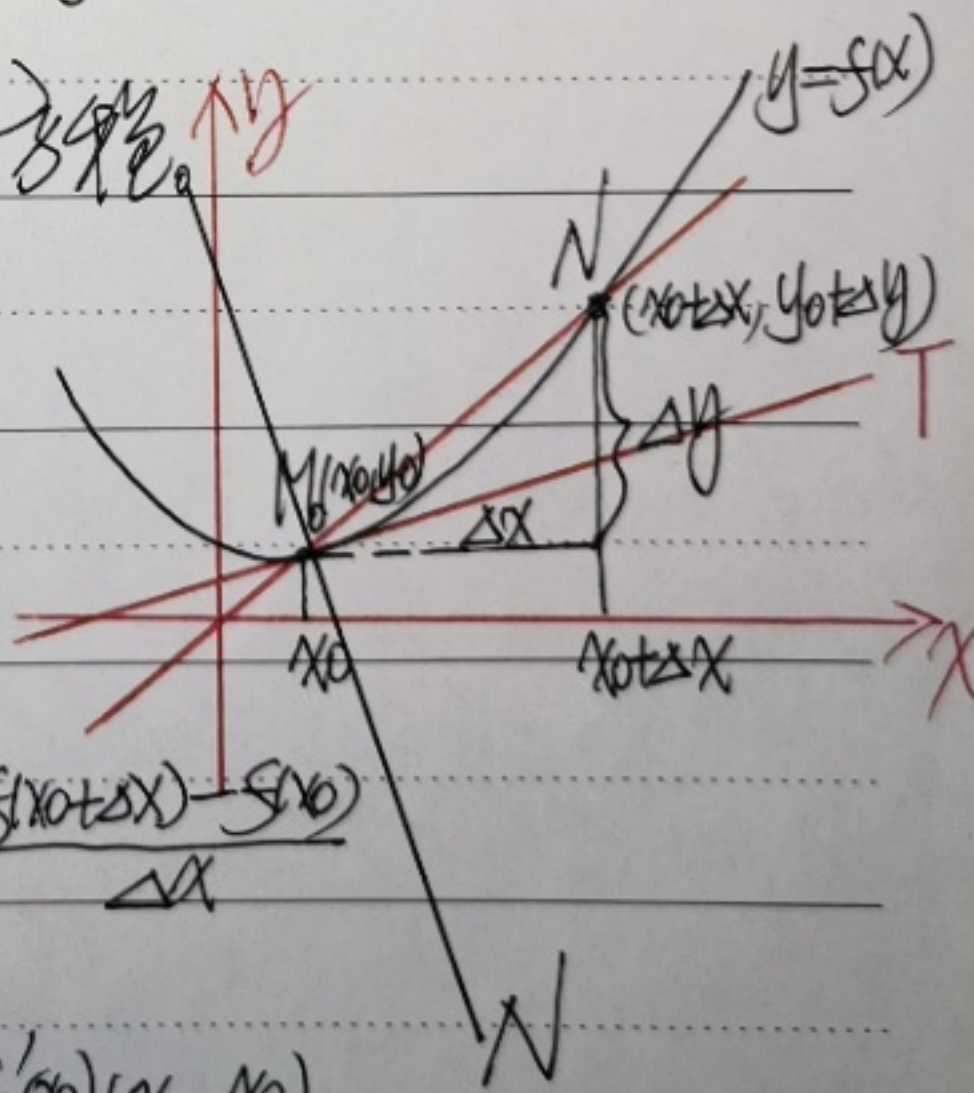 方程。
y
y=f(x)
N
(x0+Δx, y0+Δy)
T
Δy
M(x0,y0)
Δx
x0
x0+Δx
x
f(x0+Δx)-f(x0)
Δx
N